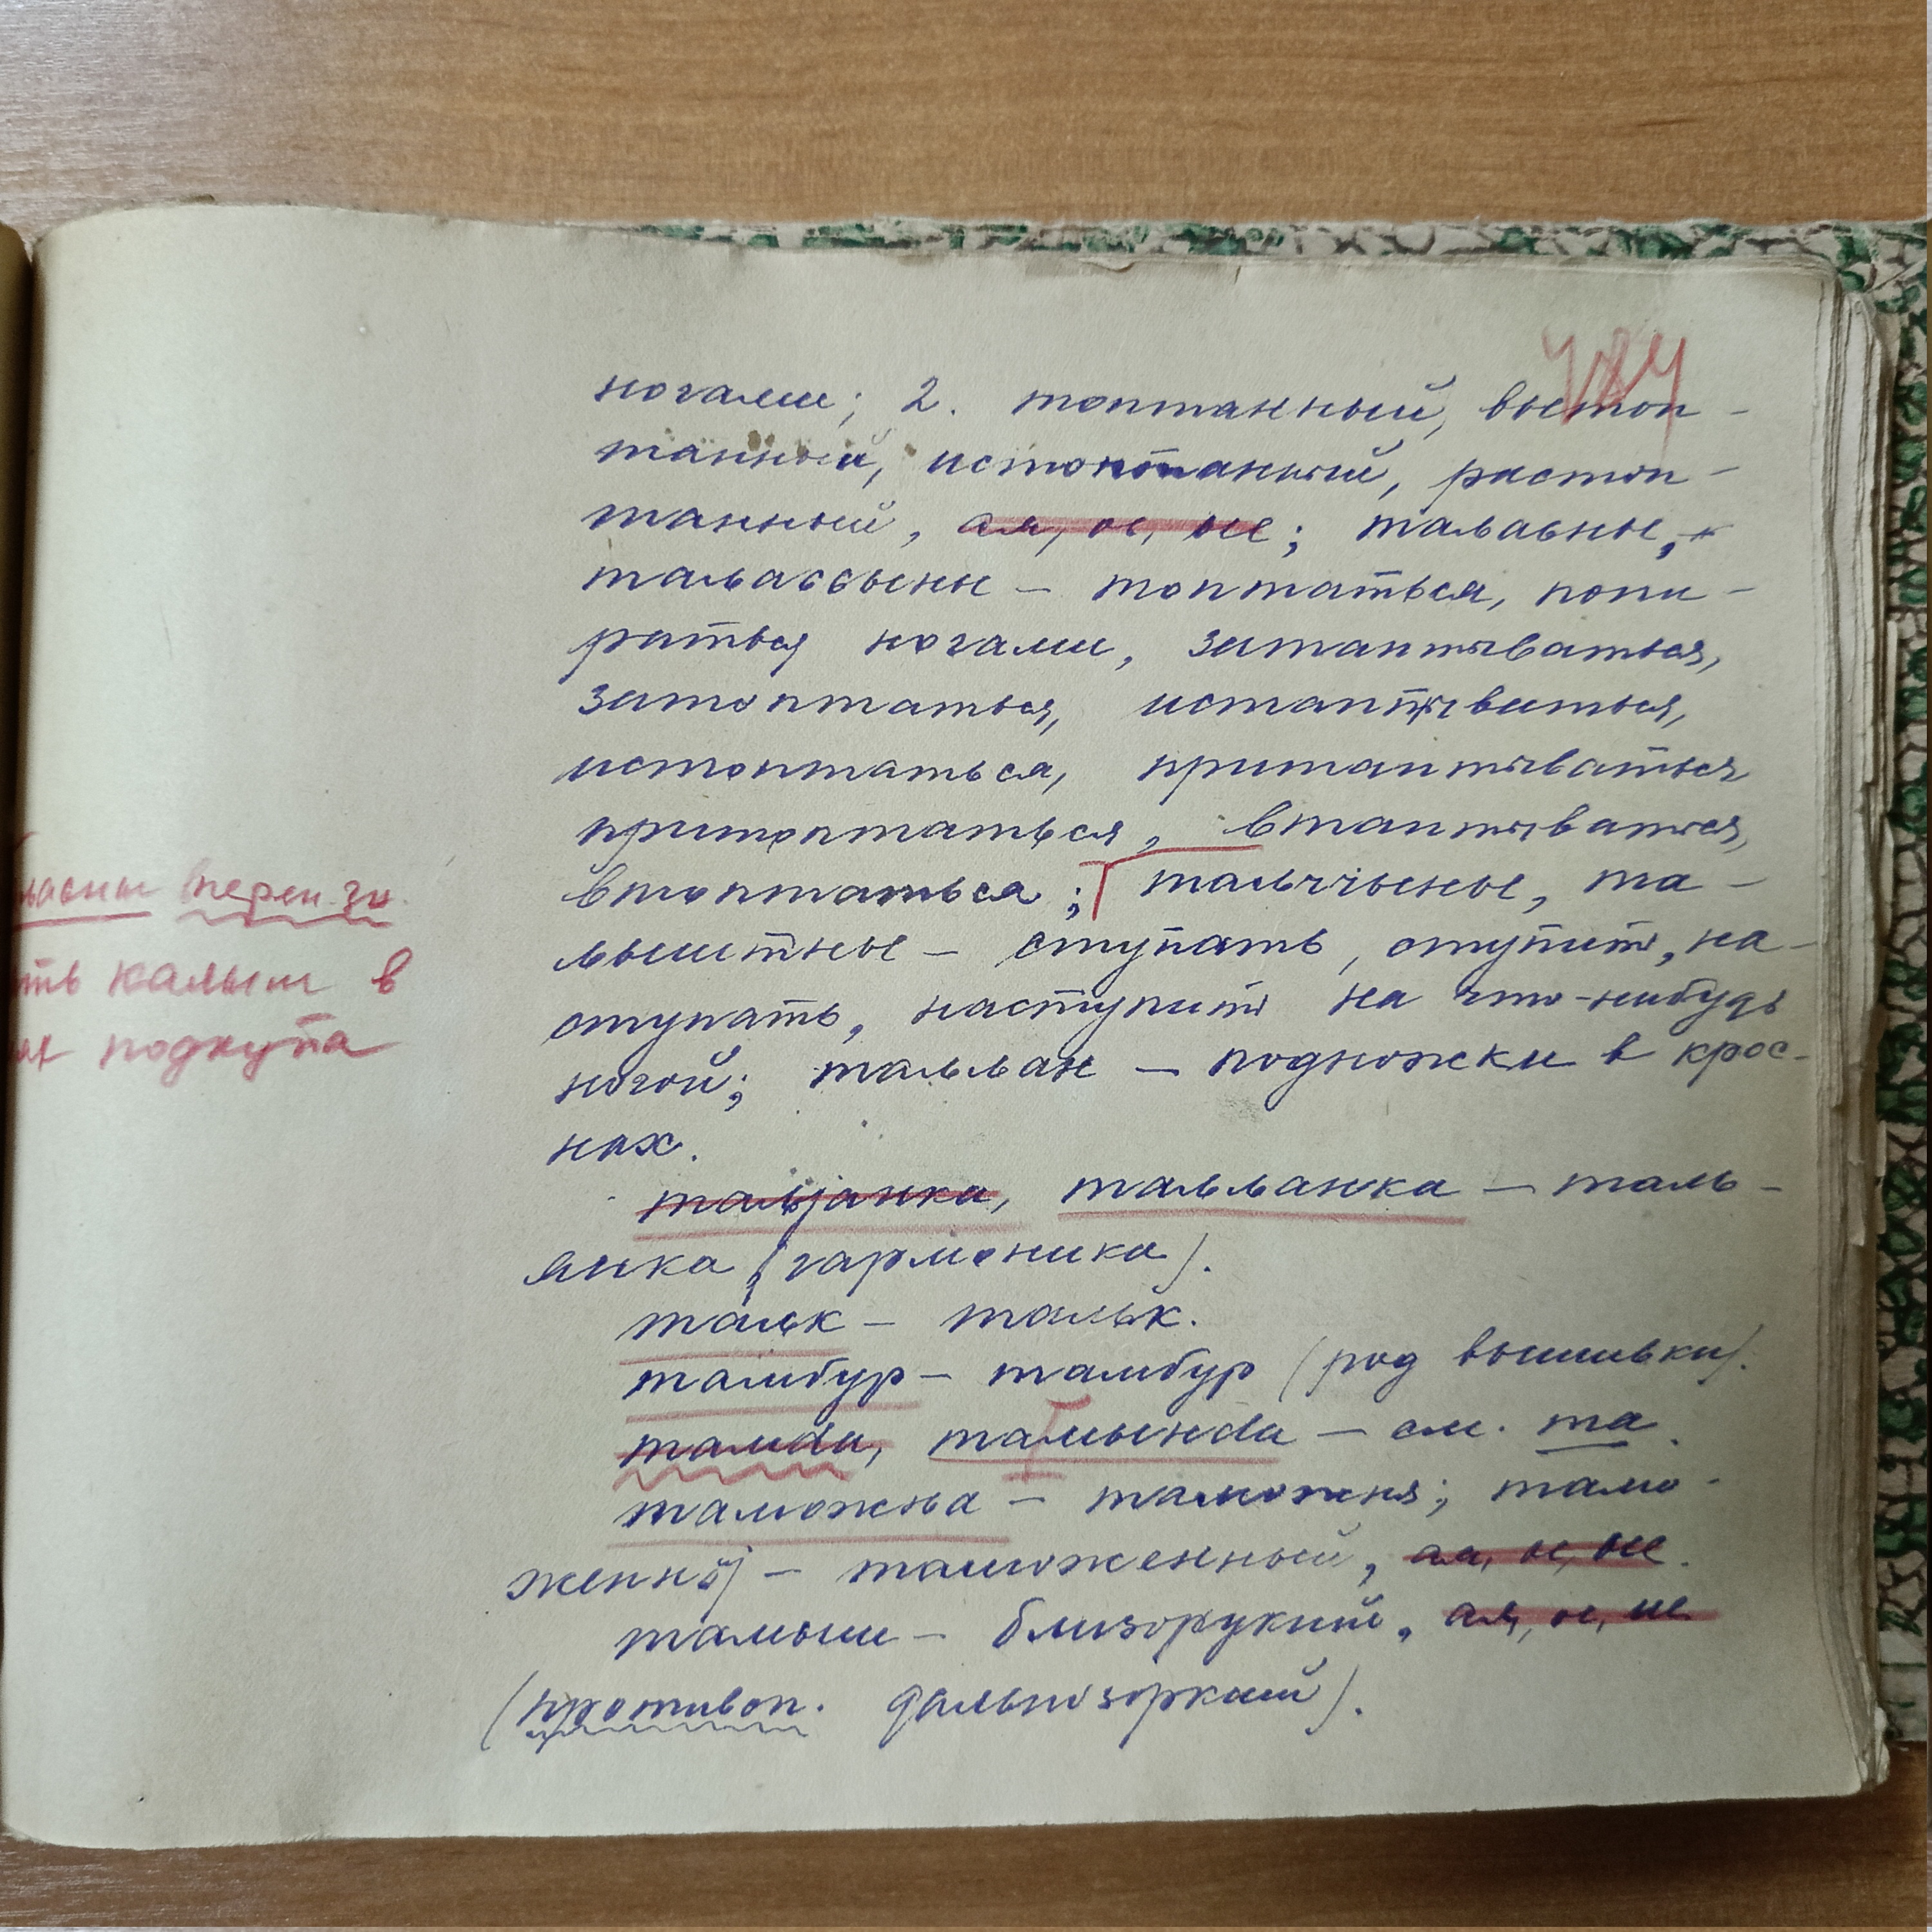 784
ногами; 2. топтанный, вытоп-
танный, истоптанный, растоп-
танный, ая, ое, ые; талявны,
талясьыны – топтаться, попи-
раться ногами, затаптываться,
затоптаться, истаптываться,
истоптаться, притаптываться
притоптаться, втаптываться,
втоптаться; тальччыны, та-
льыштны – ступать, ступить, на-
ступать, наступить на что-нибудь
ногой; тальлан – подножки в крос-
нах.
тальjанка, тальлянка – таль-
янка (гармоника).
тальк – тальк.
тамбур – тамбур (род вышивки).
тамdа, тамынdа – см. та.
таможньа – таможня; тамо-
женнӧj – таможенный, ая, ое, ые.
тамыш – близорукий, ая, ое, ие
(противоп. дальнозоркий).
перен. зн.
калым в
подкупа